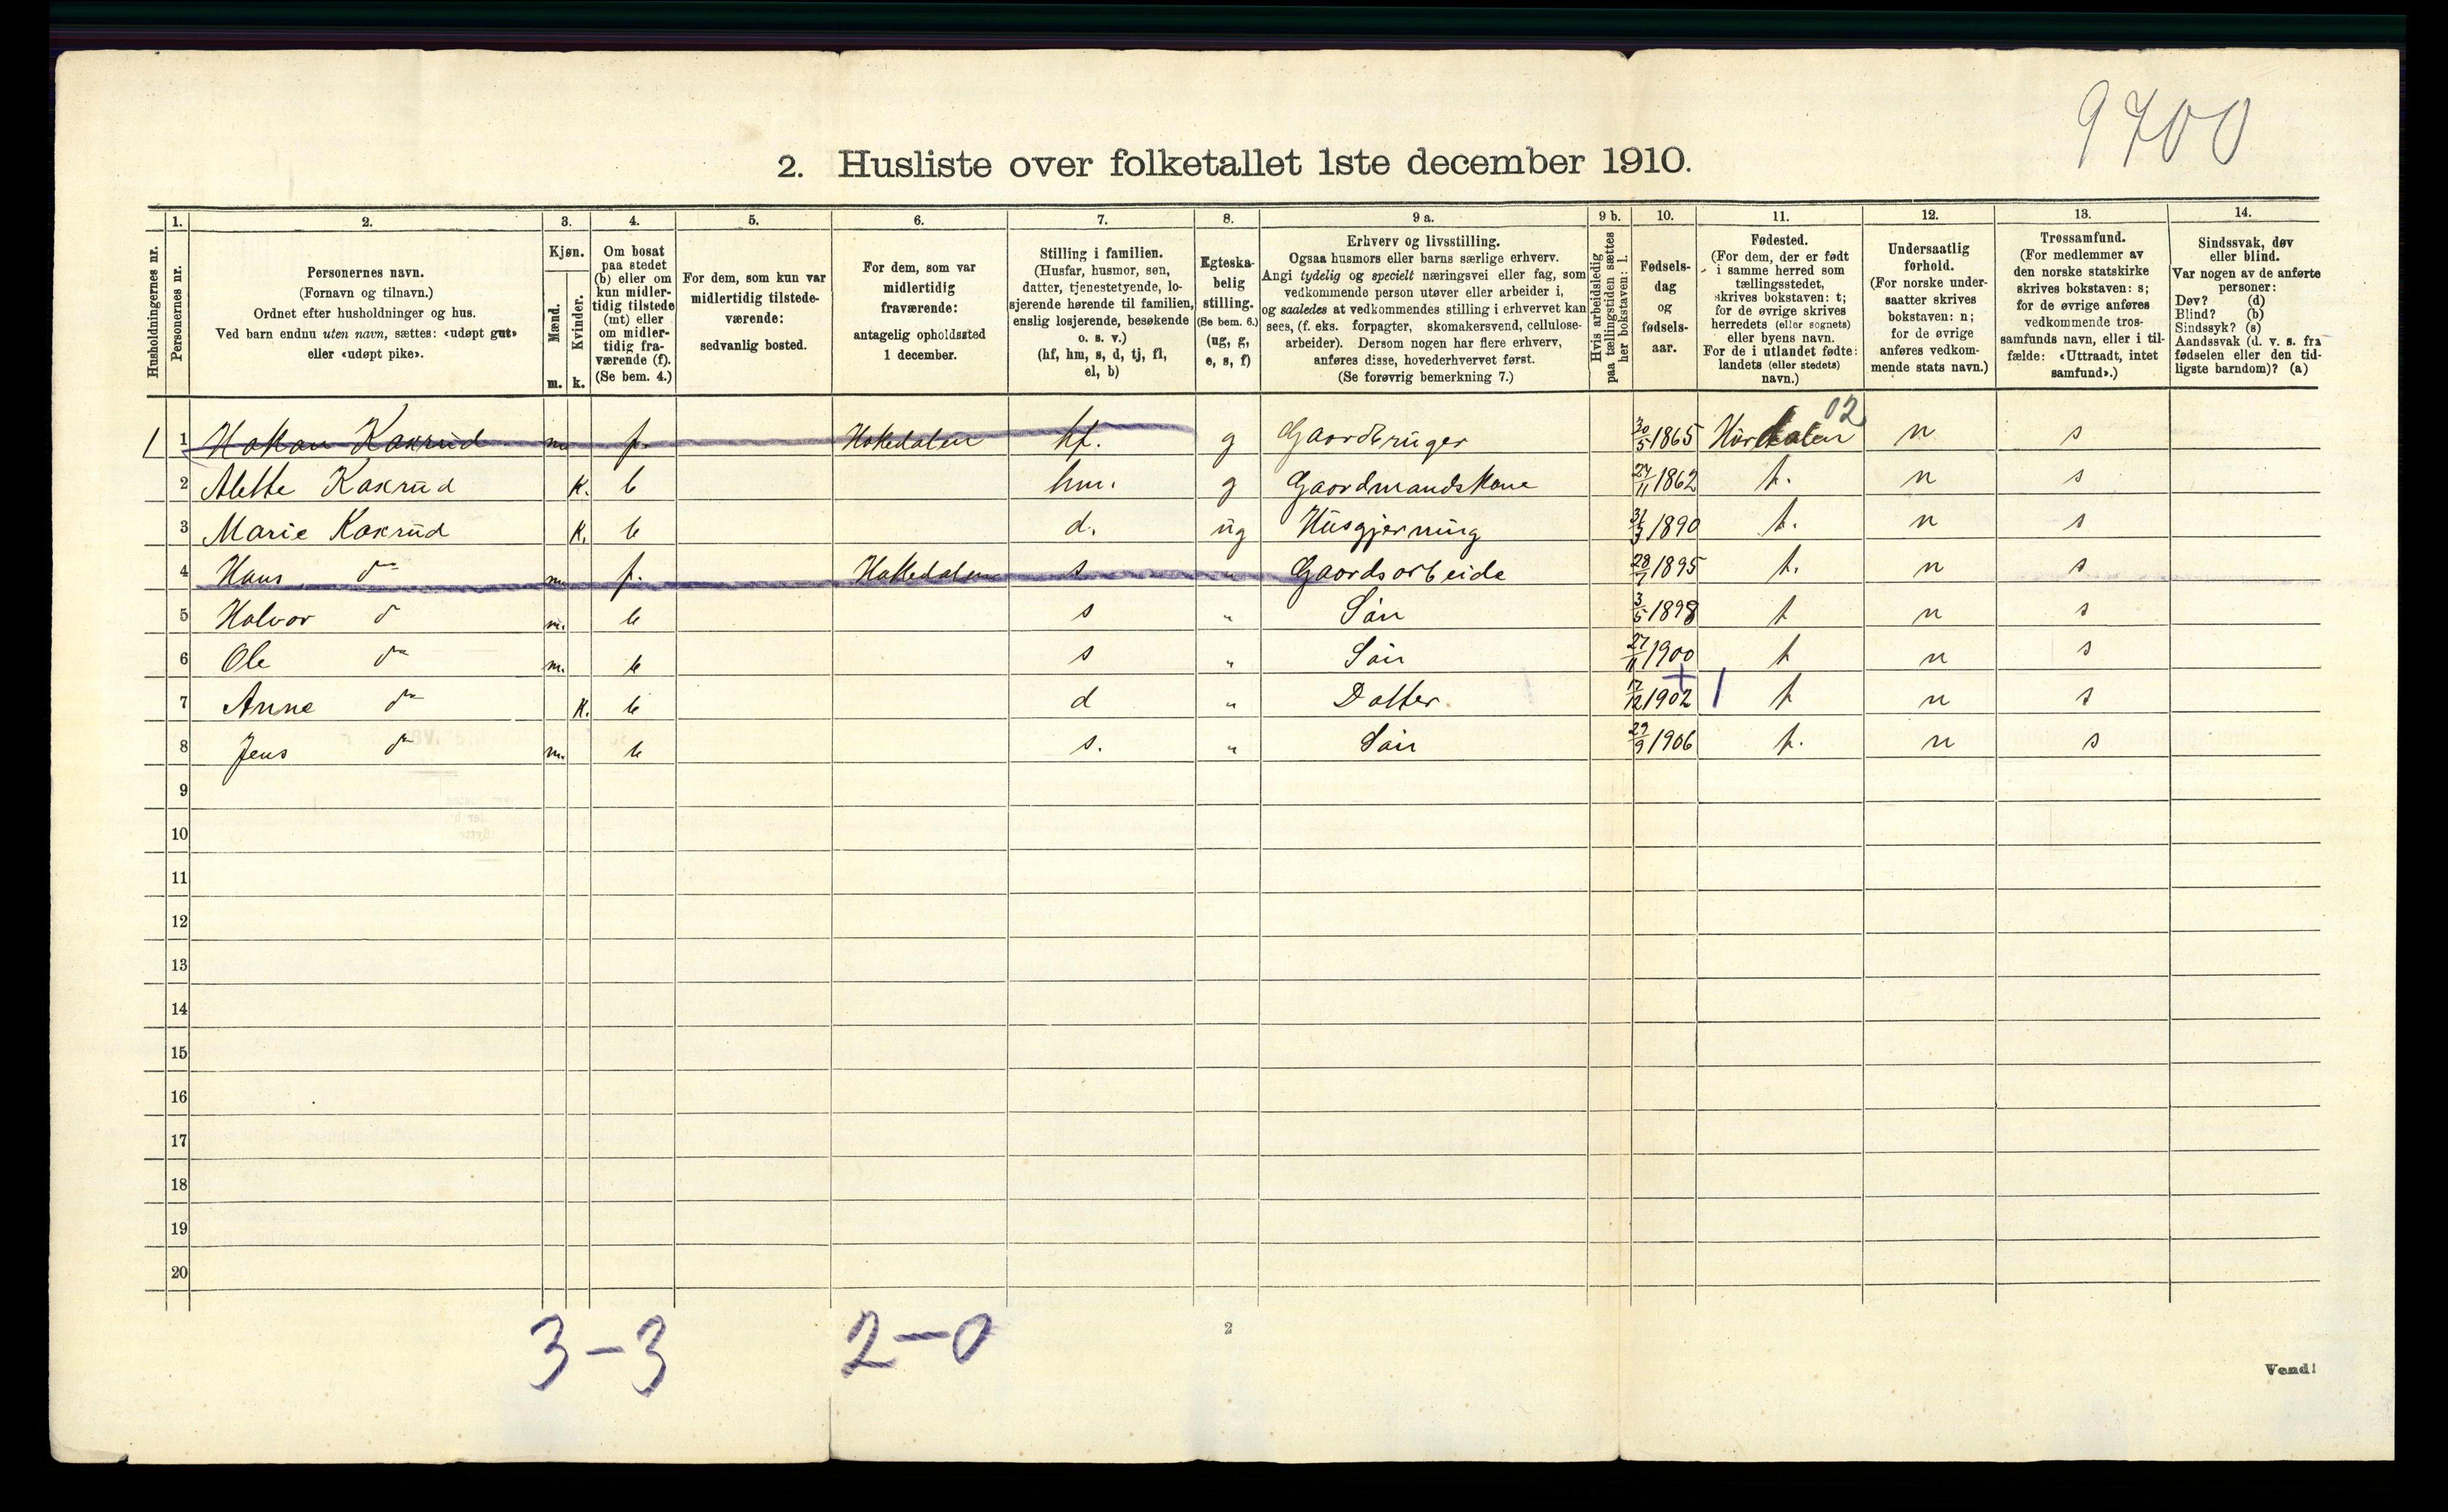 9700
2. Husliste over folketallet 1ste december 1910.
Husholdningernes nr.
1. Personernes nr.
2. Personernes navn. (Fornavn og tilnavn.) Ordnet efter husholdninger og hus. Ved barn endnu uten navn, sættes: «udøpt gut» eller «udøpt pike».
3. Kjøn. Mænd. m. Kvinder. k.
4. Om bosat paa stedet (b) eller om kun midlertidig tilstede (mt) eller om midlertidig fraværende (f). (Se bem. 4.)
5. For dem, som kun var midlertidig tilstedeværende: sedvanlig bosted.
6. For dem, som var midlertidig fraværende: antagelig opholdssted 1 december.
7. Stilling i familien. (Husfar, husmor, søn, datter, tjenestetyende, losjerende hørende til familien, enslig losjerende, besøkende o. s. v.) (hf, hm, s, d, tj, fl, el, b)
8. Egteskabelig stilling. (Se bem. 6.) (ug, g, e, s, f)
9 a. Erhverv og livsstilling. Ogsaa husmors eller barns særlige erhverv. Angi tydelig og specielt næringsvei eller fag, som vedkommende person utøver eller arbeider i, og saaledes at vedkommendes stilling i erhvervet kan sees, (f. eks. forpagter, skomakersvend, cellulosearbeider). Dersom nogen har flere erhverv, anføres disse, hovederhvervet først. (Se forøvrig bemerkning 7.)
9 b. Hvis arbeidsledig paa tællingstiden sættes her bokstaven: l.
10. Fødselsdag og fødselsaar.
11. Fødested. (For dem, der er født i samme herred som tællingsstedet, skrives bokstaven: t; for de øvrige skrives herredets (eller sognets) eller byens navn. For de i utlandet fødte: landets (eller stedets) navn.)
12. Undersaatlig forhold. (For norske undersaatter skrives bokstaven: n; for de øvrige anføres vedkommende stats navn.)
13. Trossamfund. (For medlemmer av den norske statskirke skrives bokstaven: s; for de øvrige anføres vedkommende trossamfunds navn, eller i tilfælde: «Uttraadt, intet samfund».)
14. Sindssvak, døv eller blind. Var nogen av de anførte personer: Døv? (d) Blind? (b) Sindssyk? (s) Aandssvak (d. v. s. fra fødselen eller den tidligste barndom)? (a)
02
1 1 Hakon Kaxrud m f. Hakedalen hf. g Gaardbruger 30/5 1865 Hurdalen n s
2 Alette Kaxrud k. b hm. g Gaardmandskone 24/11 1862 t. n s
3 Marie Kaxrud k. b d. ug Husgjerning 31/3 1890 t. n s
4 Hans do m. f. Hakedalen s " Gaardsarbeide 28/7 1895 t. n s
5 Halvor do m. b s " Søn 3/5 1898 t n s
6 Ole do m. b s " Søn 27/11 1900 t n s
7 Anne do k. b d " Datter 17/12 1902 + 1 t n s
8 Jens do m. b s. " Søn 29/9 1906 t. n s
9
10
11
12
13
14
15
16
17
18
19
20
3-3 2-0
2
Vend!